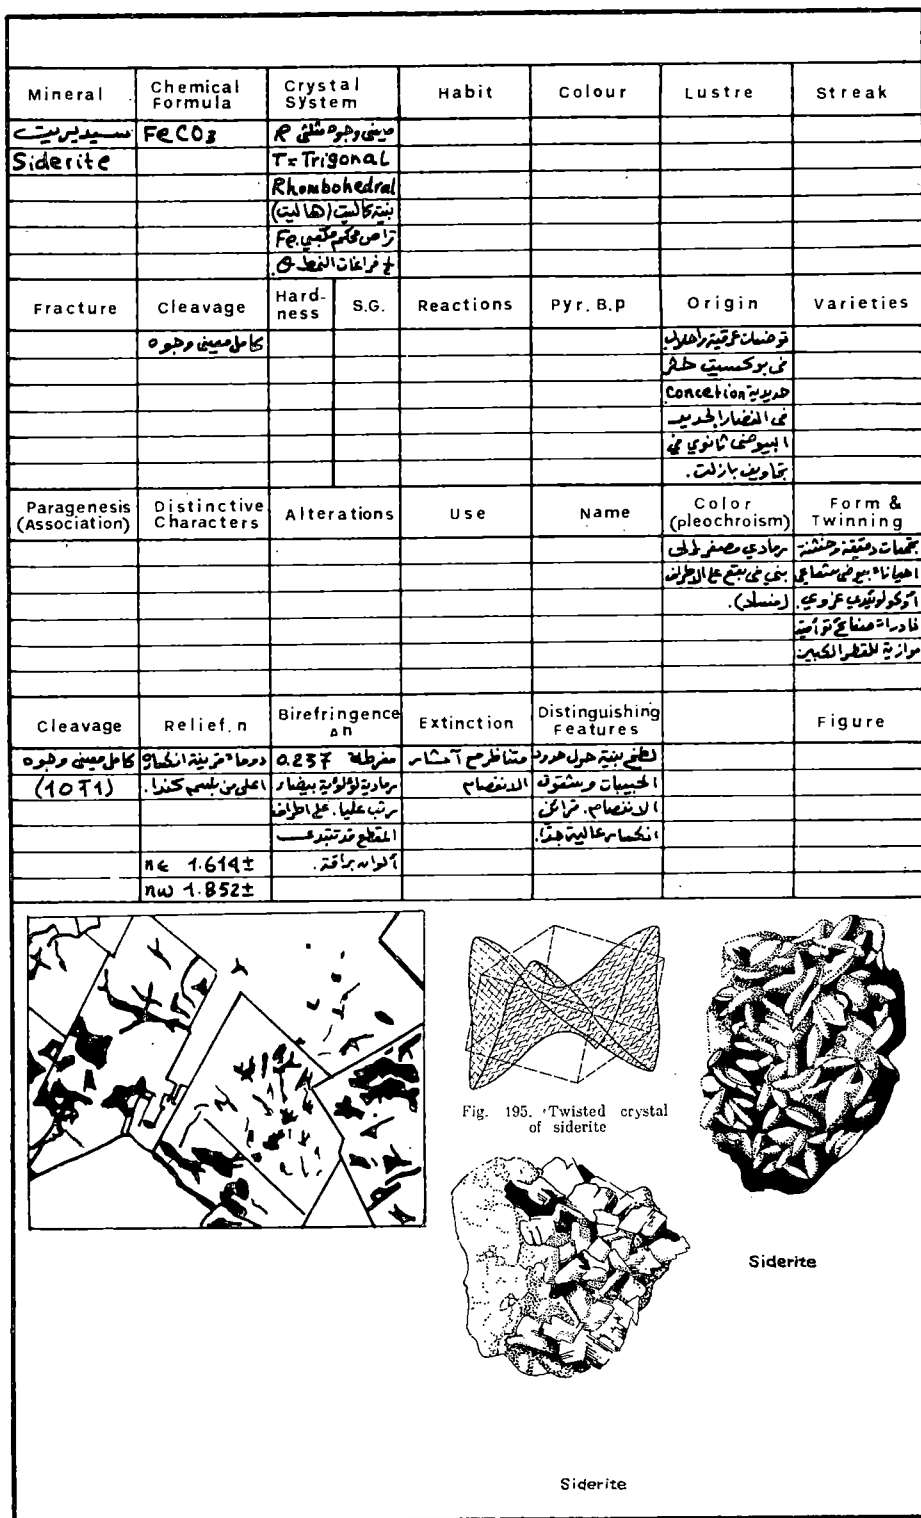 Mineral Chemical Formula Crystal System Habit Colour Lustre Streak
سيديريت FeCO3 معيني وجوه مثلثي R
Siderite T=Trigonal
Rhombohedral
بنية كالسيت (هاليت)
تراص محكم مكعبي Fe.
Fracture Cleavage Hard-ness S.G. Reactions Pyr. B.p Origin Varieties
كامل معيني وجوه توضعات عرقية
في بوكسيت
حديدية Concetion
في الغضار
ثانوي في
تجاويف بازلت.
Paragenesis (Association) Distinctive Characters Alterations Use Name Color (pleochroism) Form & Twinning
رمادي مصفر إلى تجمعات دقيقة وخشنة
بني في بقع على الأطراف أحيانا بيوضي شعاعي
أو كولوئيدي غروي.
نادرا صفائح توأمية
موازية للقطر الكبير
Cleavage Relief. n Birefringence Δn Extinction Distinguishing Features Figure
كامل معيني وجوه دوما قرينة انكسار مفرطة 0.237 متناظر مع آثار لطخ بنية حول حدود
(10T1) أعلى من بلسم كندا. رمادية لؤلؤية بيضاء الانفصام الحبيبات وشقوق
رتب عليا. على أطراف الانفصام. قرائن
المقطع قد تبدو انكسار عالية جدا.
nε 1.614± ألوان براقة.
nω 1.852±
Fig. 195. Twisted crystal
of siderite
Siderite
Siderite